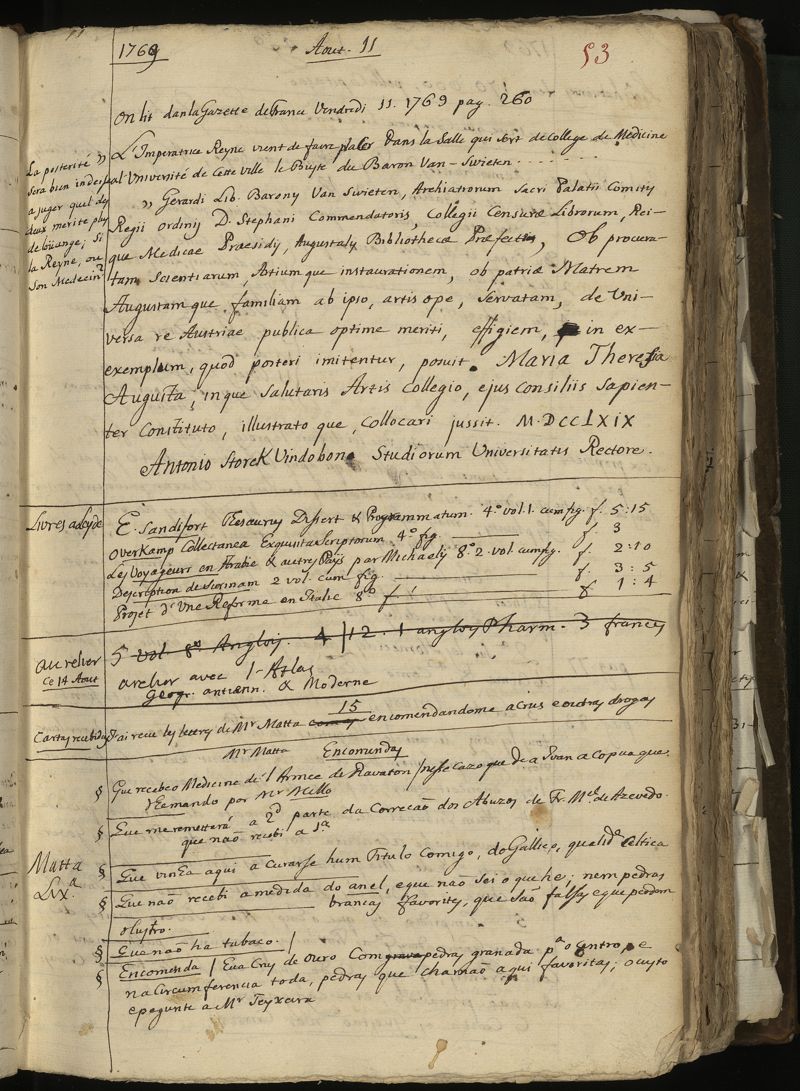 1769 Aout. 11 53
On lit dan la Gazette de France Vendredi 11. 1769 pag. 260
L'Imperatrice Reyne vient de faire placer dans la Salle qui sert de College de Medicine
al Université de Cette Ville le Buste du Baron Van-Swieten.......
La posterité
sera bien indecise
a juger quel des
deux merite plus
de loüange; Si
la Reyne, ou
Son Medecin?
" Gerardi Lib. Barony Van Swieten, Archiatrorum Sacri Palatii Comitis
Regii ordinis D. Stephani Commendatoris, Collegii Censuræ Librorum, Rei-
que Medicae Praesidis, Augustalis Bibliothecæ Præfecti, Ob procura-
tam Scientiarum, Artiumque instaurationem, ob patriæ Matrem
Augustamque familiam ab ipso, artis ope, Servatam, de Uni-
versa re Austriae publica optime meriti, effigiem, in ex-
exemplum, quod posteri imitentur, posuit. Maria Theresia
Augusta; inque Salutaris Artis Collegio, ejus Consiliis Sapien-
ter Constituto, illustrato que, Collocari jussit. M.DCCLXIX
Antonio Storck Vindobon. Studiorum Universitatis Rectore.
Livres a Leyde
E. Sandifort Thesaurus Dissert & Programmatum. 4.º vol. 1. cum fig. f. 5:15
Overkamp Collectanea Exquisita Scriptorum 4.º fig. f. 3
Les Voyageurs en Arabie & autres Pays par Michaelis 8.º 2. vol. cum fig. f. 2:10
Description de Surinam 2 vol. cum fig. f. 3:5
Projet d'Une Reforme en Italie 8.º f. 1:4
au relier
ce 14 Aout
5 vol 8.º Anglois. 4 | 12. 1 anglois Pharm. 3 francés
arelier avec 1-Atlas
Geogr. antienn. & Moderne
Cartas recebidas
J'ai recue les lettres de Mr Matta 15 encomendandome a Crus e outras drogas
Mr Matta Encomendas
§ Que recebeo Medicine de l'Armee de Ravaton / nesse cazo que de a Ivan a Copia que
Remando por Mr Mello
§ Que me remetterá a 2ª parte da Correcaõ dos Abuzos de Fr. Mel. de Azevedo.
que naõ recebi a 1ª
Matta
Lixª
§ Que vinha aqui a Curarse hum Titulo Comigo, do Gallico,
§ Que naõ recebi a medida do anel, eque naõ Sei o que he; nem pedras
brancas favorites, que Saõ falsas eque perdem
olustro.
§ Que naõ ha tabaco.
§ Encomenda / Eua Crus de Ouro Com pedras granada pª o Centro, e
na Circumferencia toda, pedras que chamaõ aqui favoritas; o custo
e pegunte a Mr Teyxeira